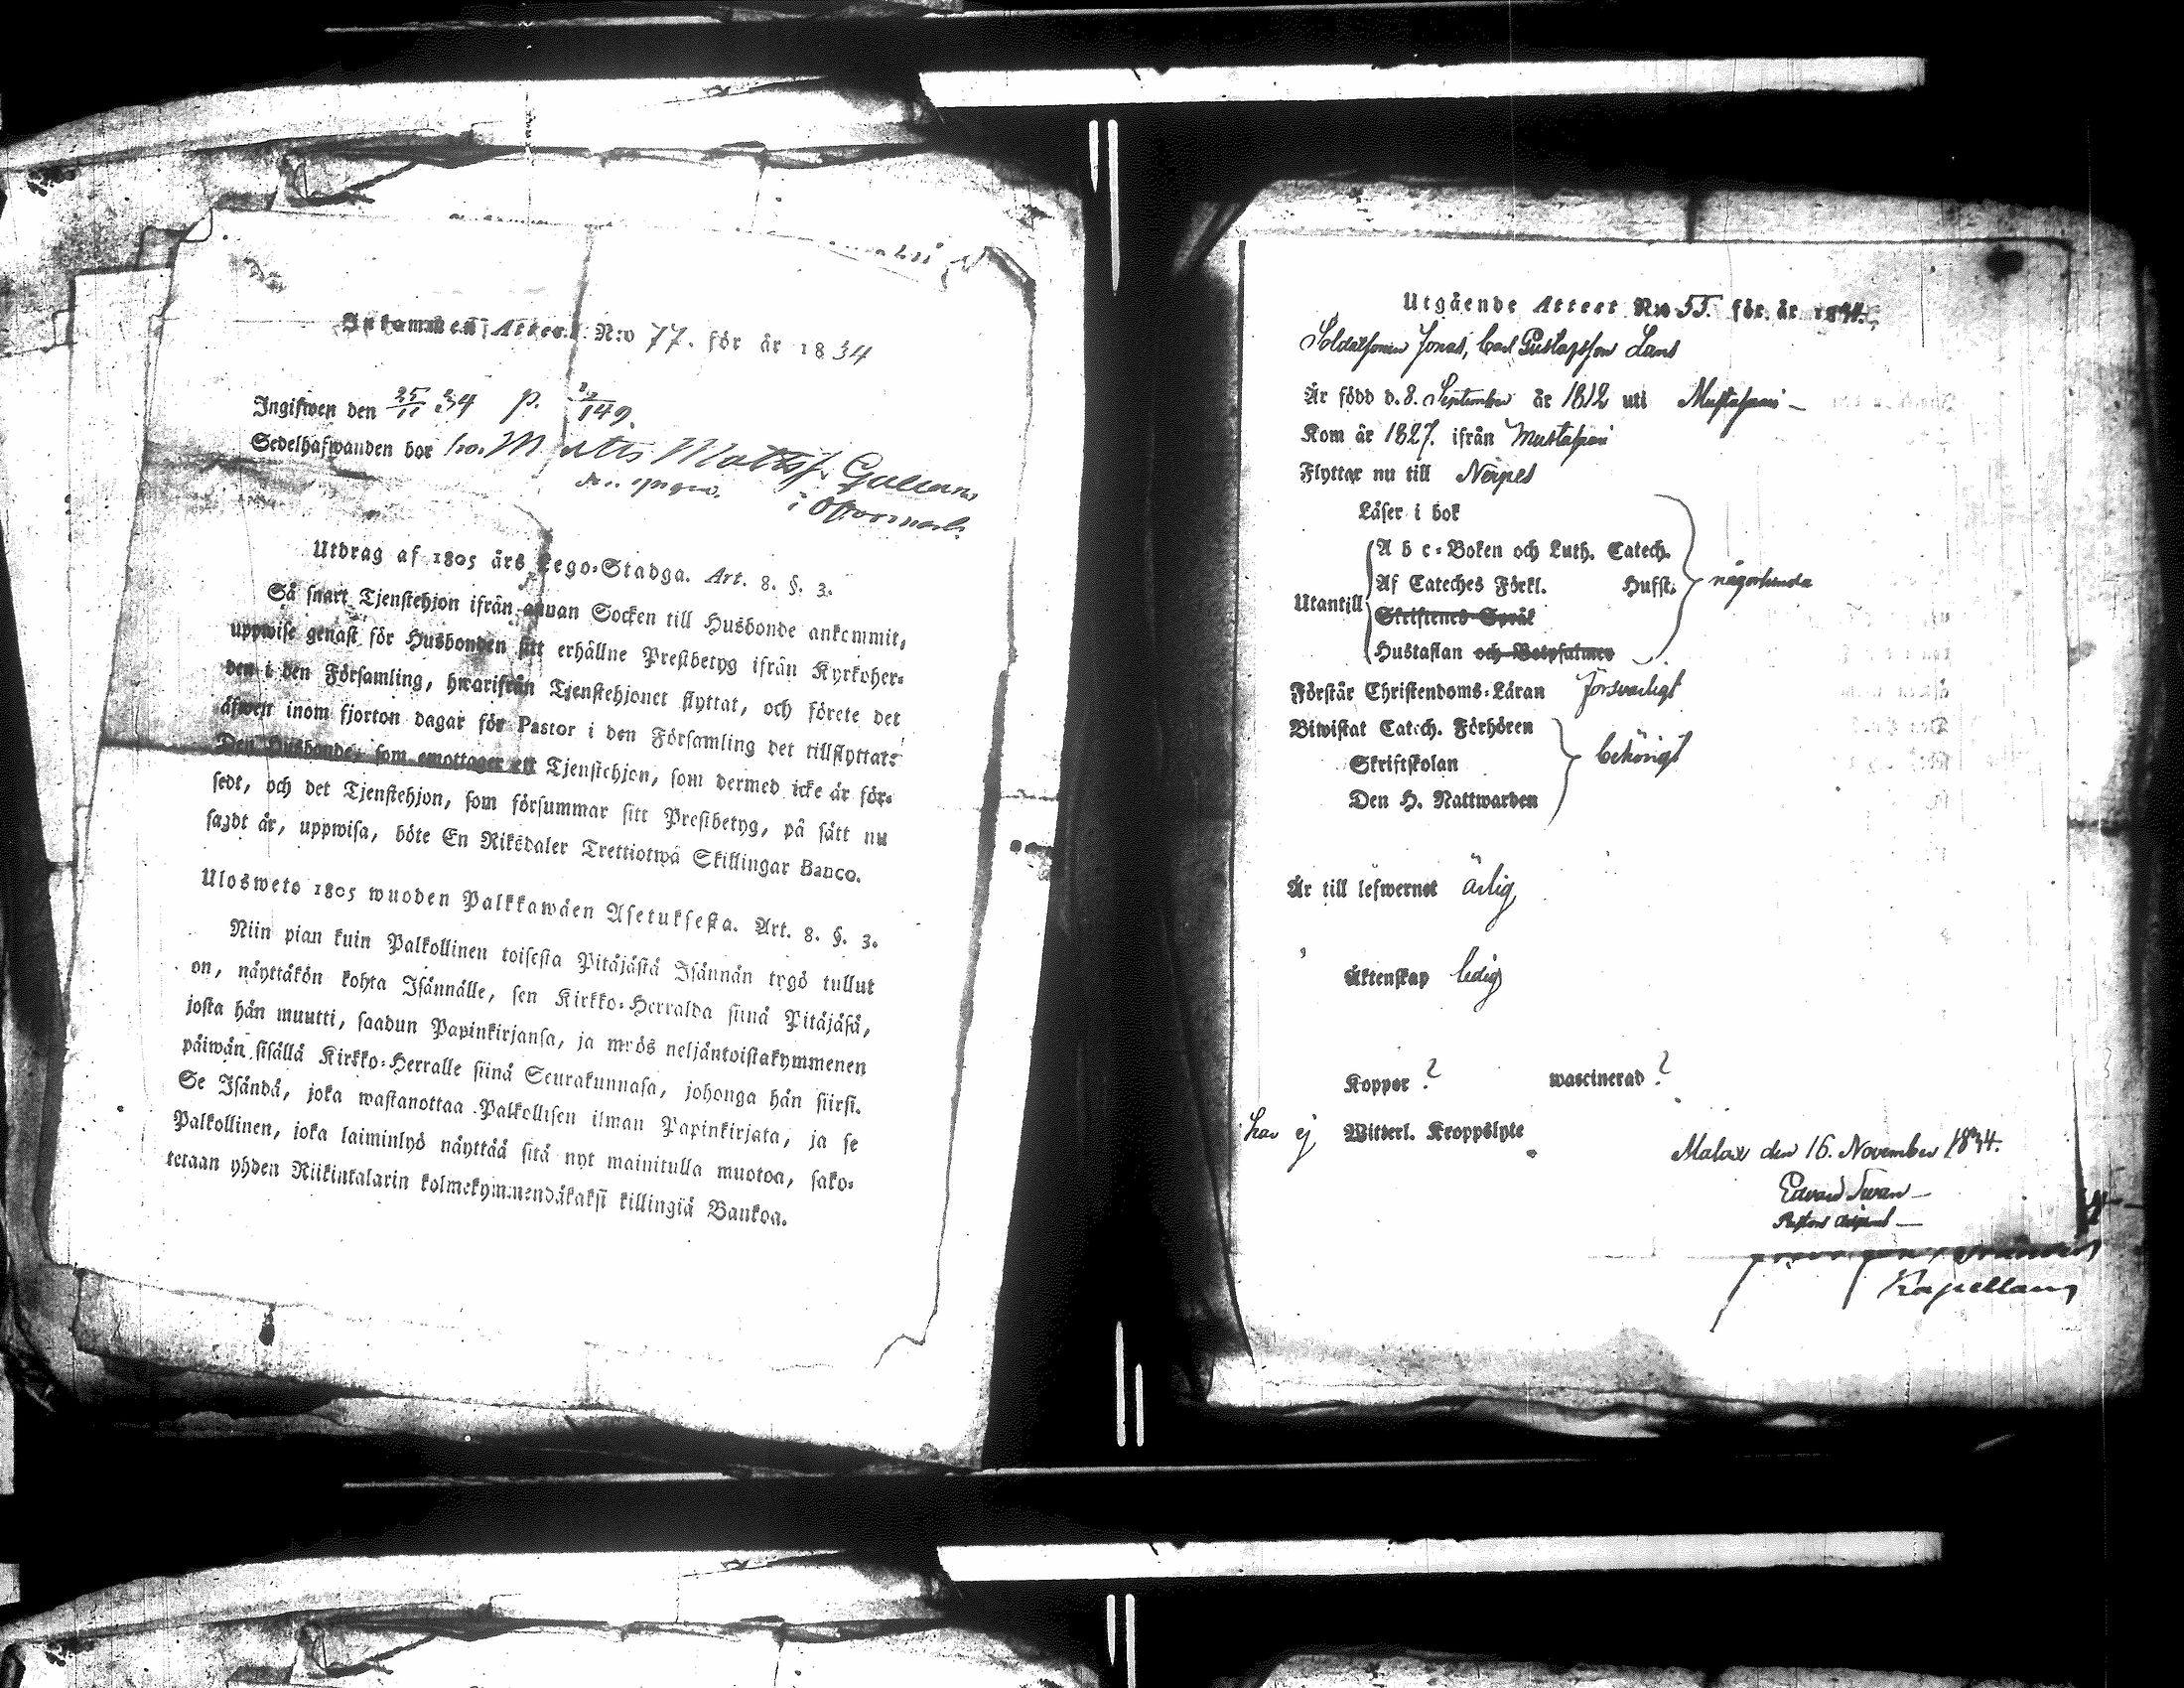 Inkommen Attest N:o 77. för år 1834
Ingifwen den 25/11 34 p. 149.
Sedelhafwanden bor hos Matts Mattss.
i Öfvermark
Utdrag af 1805 års Lego-Stadga. Art. 8. §. 3.
Så snart Tjenstehjon ifrån annan Socken till Husbonde ankommit,
uppwise genast för Husbonden sitt erhållne Prestbetyg ifrån Kyrkoher-
den i den Församling, hwarifrån Tjenstehjonet flyttat, och förete det
äfwen inom fjorton dagar för Pastor i den Församling det tillflyttat:
Den Husbonde, som emottager ett Tjenstehjon, som dermed icke är för-
sedt, och det Tjenstehjon, som försummar sitt Prestbetyg, på sätt nu
sagdt är, uppwisa, böte En Riksdaler Trettiotwå Skillingar Banco.
Ulosweto 1805 wuoden Palkkawäen Asetuksesta. Art. 8. §. 3.
Niin pian kuin Palkollinen toisesta Pitäjästä Isännän tygö tullut
on, näyttäkön kohta Isännälle, sen Kirkko-Herralda siinä Pitäjäsä,
josta hän muutti, saadun Papinkirjansa, ja myös neljäntoistakymmenen
päiwän sisällä Kirkko-Herralle siinä Seurakunnasa, johonga hän siirsi.
Se Isändä, joka wastanottaa Palkollisen ilman Papinkirjata, ja se
Palkollinen, joka laiminlyö näyttää sitä nyt mainitulla muotoa, sako-
tetaan yhden Riikintalarin kolmekymmendäkaksi killingiä Bankoa.
Utgående Attest N:o 55. för år 1834.
Soldatsonen Jonas, Carl Gustafsson Lans
Är född d. 8. September år 1812 uti Mustasaari
Kom år 1827. ifrån Mustasaari
Flyttar nu till Nerpes
Läser i bok
A b c-Boken och Luth. Catech.
Af Cateches Förkl. Husst.
någorlunda
Utantill
Skriftenes Språk
Hustaflan och Botpsalmer
Förstår Christendoms-Läran försvarligt
Biwistat Catech. Förhören
Skriftskolan
behörigt
Den H. Nattwarden
Är till lefwernet ärlig
Äktenskap ledig
Koppor ? waccinerad ?
har ej Witterl. Kroppslyte
Malax den 16. November 1834.
Edvard Svan
Kapellan